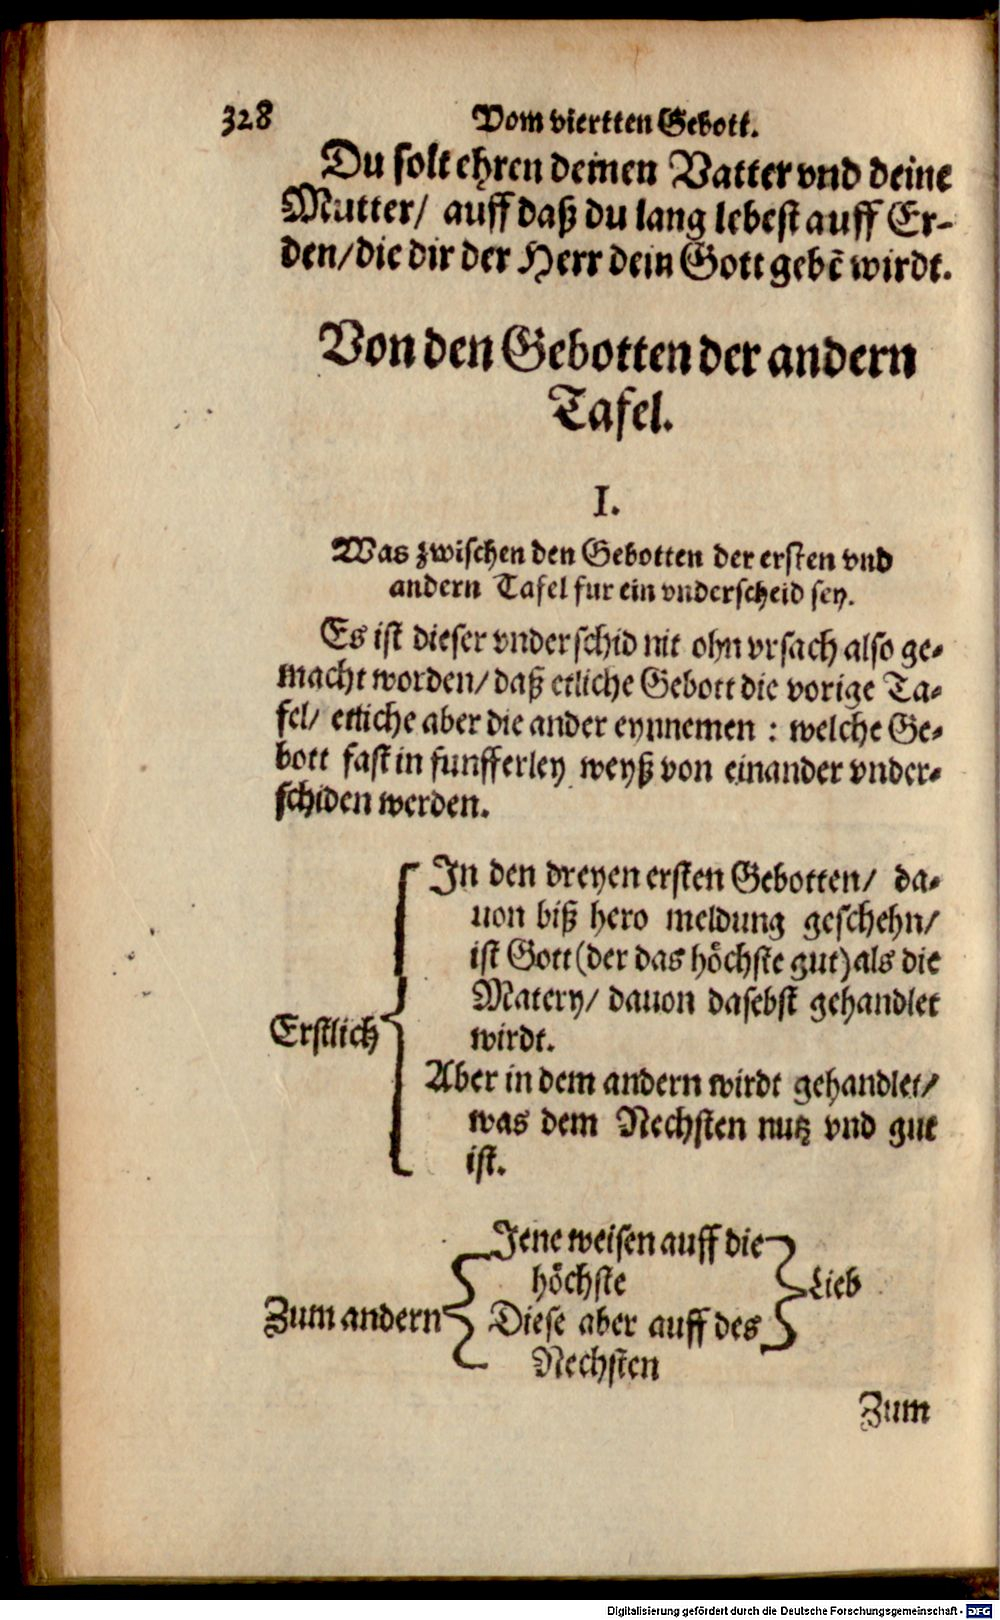 328 Vom viertten Gebott.
Du solt ehren deinen Vatter vnd deine
Mutter/ auff daß du lang lebest auff Er-
den/die dir der Herr dein Gott gebẽ wirdt.
Von den Gebotten der andern
Tafel.
I.
Was zwischen den Gebotten der ersten vnd
andern Tafel fur ein vnderscheid sey.
Es ist dieser vnderschid nit ohn vrsach also ge-
macht worden/ daß etliche Gebott die vorige Ta-
fel/ etliche aber die ander eynnemen : welche Ge-
bott fast in funfferley weyß von einander vnder-
schiden werden.
In den dreyen ersten Gebotten/ da-
uon biß hero meldung geschehn/
ist Gott (der das höchste gut) als die
Matery/ dauon dasebst gehandlet
Erstlich wirdt.
Aber in dem andern wirdt gehandlet/
was dem Nechsten nutz vnd gut
ist.
Jene weisen auff die
höchste Lieb
Zum andern Diese aber auff des
Nechsten
Zum
Digitalisierung gefördert durch die Deutsche Forschungsgemeinschaft - DFG